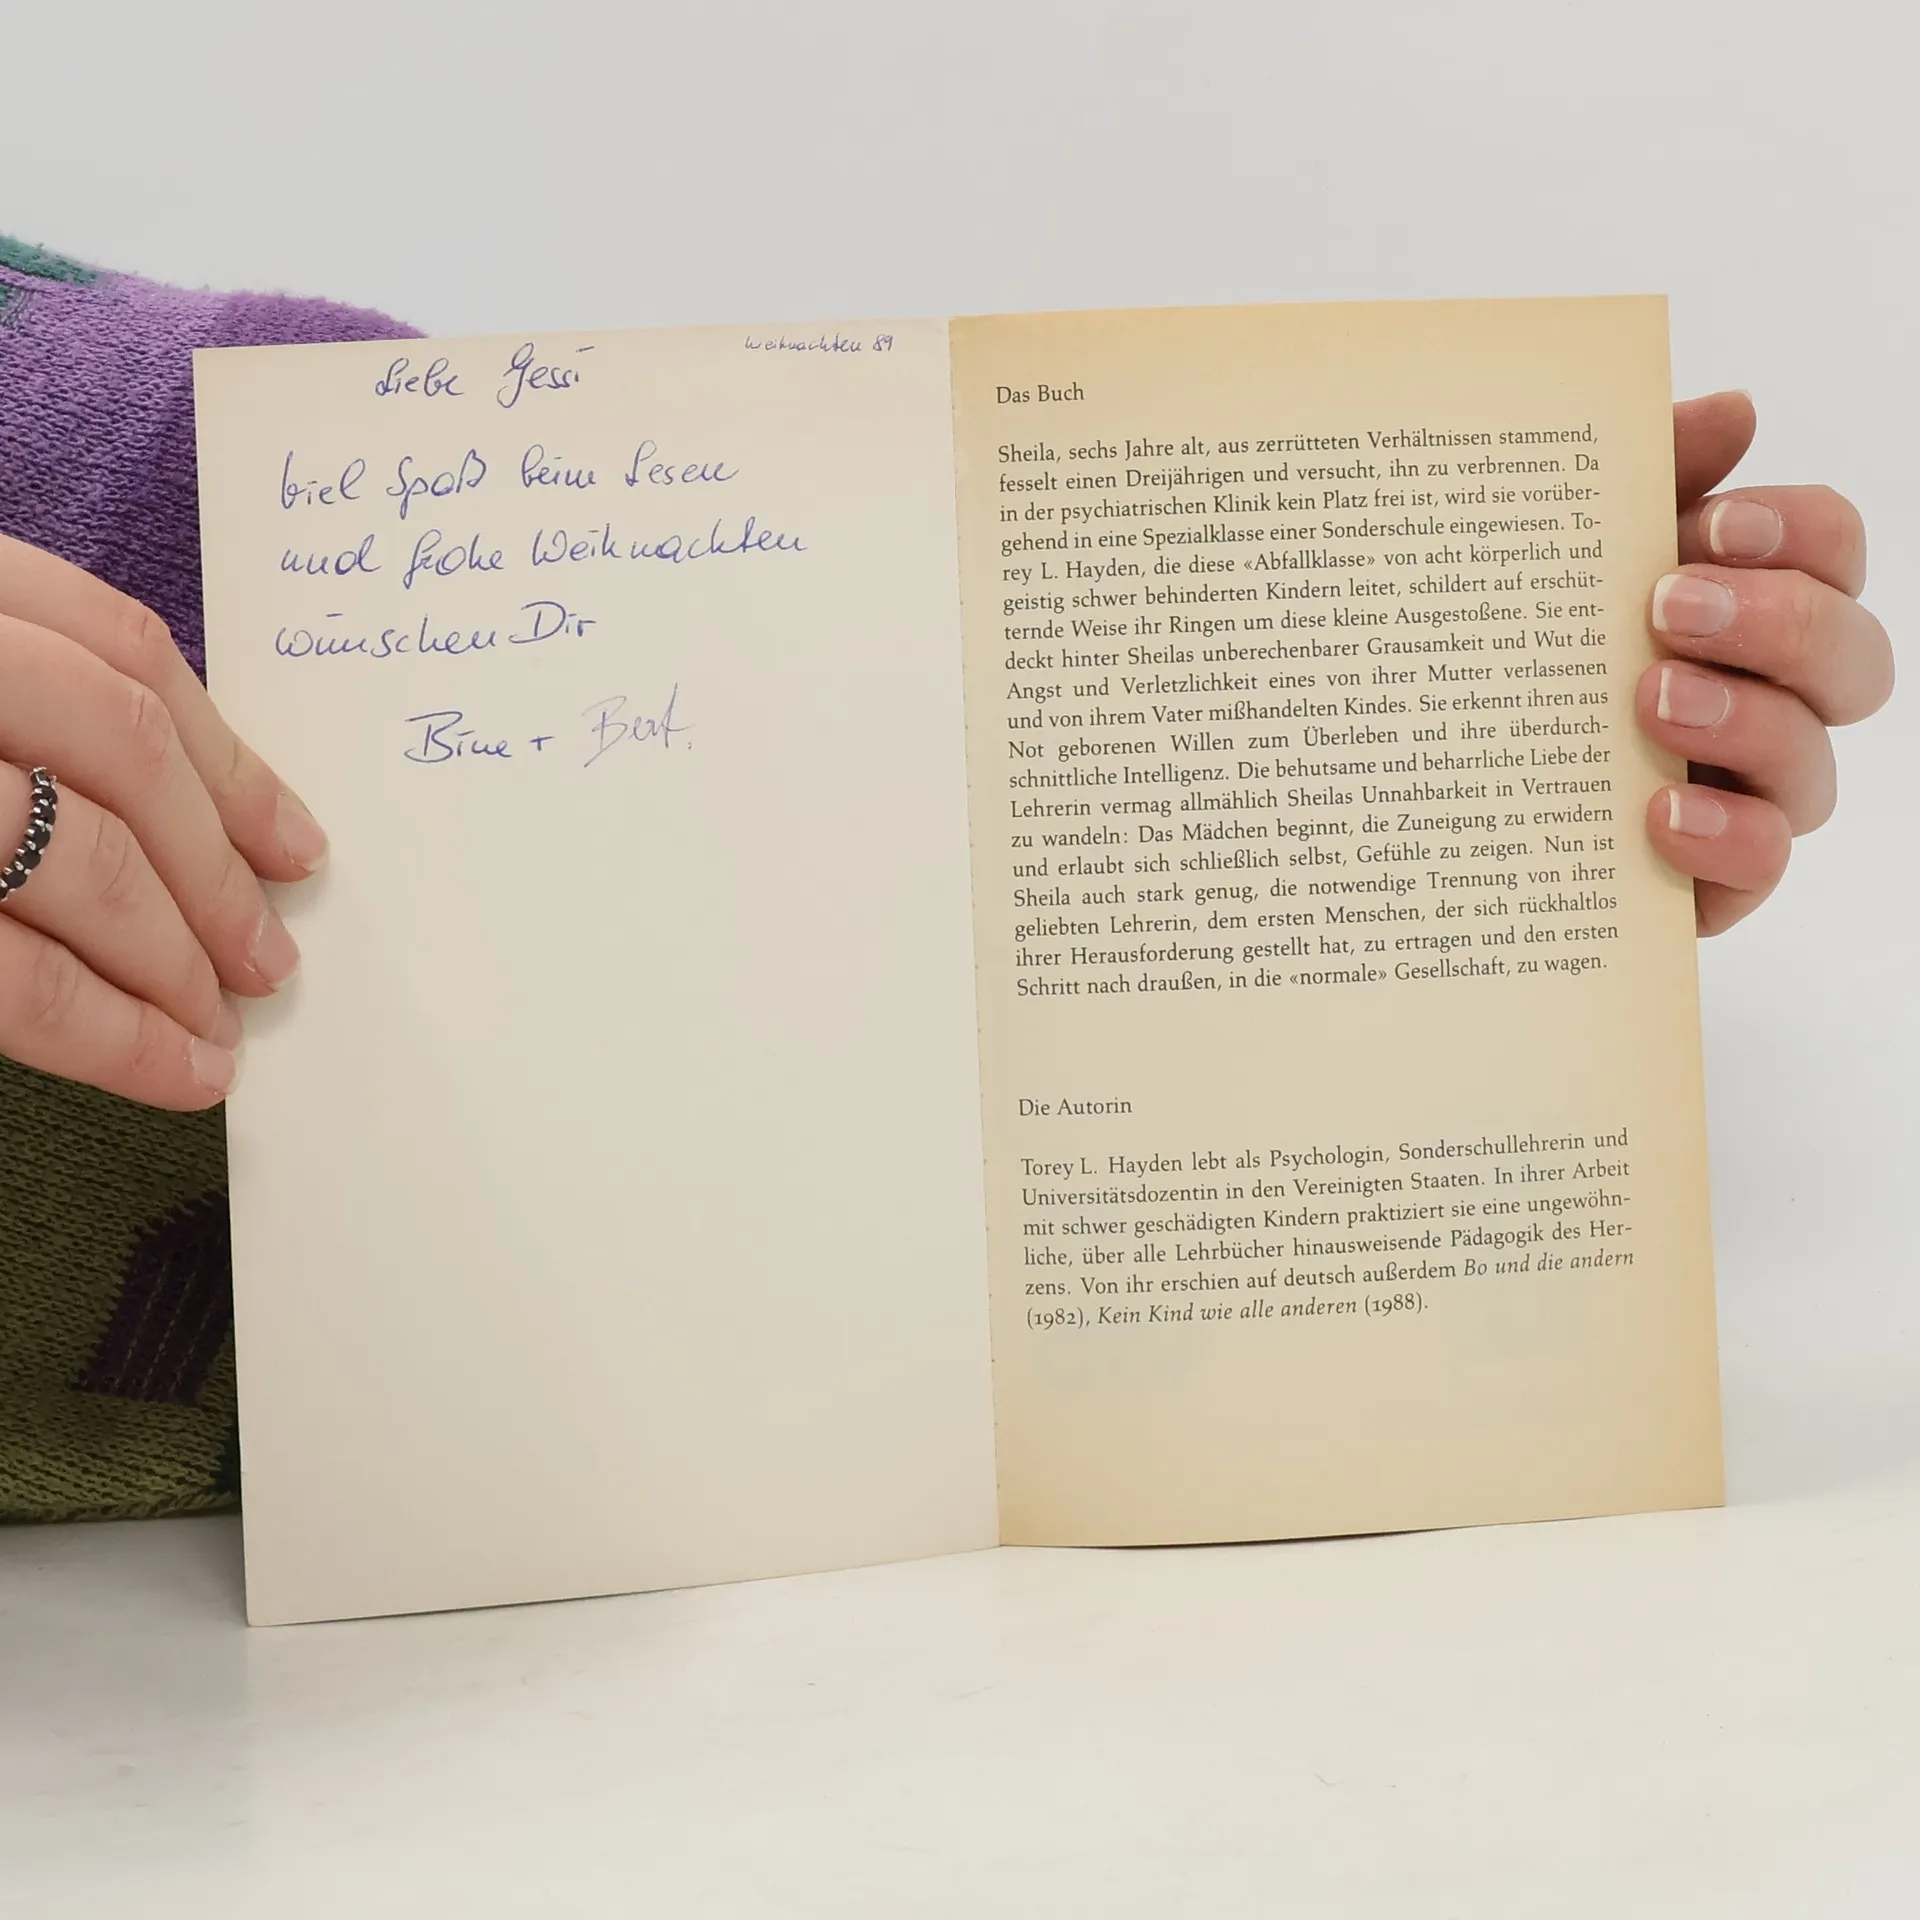 Weihnachten 89
Liebe Gessi
viel Spaß beim Lesen
und frohe Weihnachten
wünschen Dir
Bine + Bert.
Das Buch
Sheila, sechs Jahre alt, aus zerrütteten Verhältnissen stammend,
fesselt einen Dreijährigen und versucht, ihn zu verbrennen. Da
in der psychiatrischen Klinik kein Platz frei ist, wird sie vorüber-
gehend in eine Spezialklasse einer Sonderschule eingewiesen. To-
rey L. Hayden, die diese «Abfallklasse» von acht körperlich und
geistig schwer behinderten Kindern leitet, schildert auf erschüt-
ternde Weise ihr Ringen um diese kleine Ausgestoßene. Sie ent-
deckt hinter Sheilas unberechenbarer Grausamkeit und Wut die
Angst und Verletzlichkeit eines von ihrer Mutter verlassenen
und von ihrem Vater mißhandelten Kindes. Sie erkennt ihren aus
Not geborenen Willen zum Überleben und ihre überdurch-
schnittliche Intelligenz. Die behutsame und beharrliche Liebe der
Lehrerin vermag allmählich Sheilas Unnahbarkeit in Vertrauen
zu wandeln: Das Mädchen beginnt, die Zuneigung zu erwidern
und erlaubt sich schließlich selbst, Gefühle zu zeigen. Nun ist
Sheila auch stark genug, die notwendige Trennung von ihrer
geliebten Lehrerin, dem ersten Menschen, der sich rückhaltlos
ihrer Herausforderung gestellt hat, zu ertragen und den ersten
Schritt nach draußen, in die «normale» Gesellschaft, zu wagen.
Die Autorin
Torey L. Hayden lebt als Psychologin, Sonderschullehrerin und
Universitätsdozentin in den Vereinigten Staaten. In ihrer Arbeit
mit schwer geschädigten Kindern praktiziert sie eine ungewöhn-
liche, über alle Lehrbücher hinausweisende Pädagogik des Her-
zens. Von ihr erschien auf deutsch außerdem Bo und die andern
(1982), Kein Kind wie alle anderen (1988).